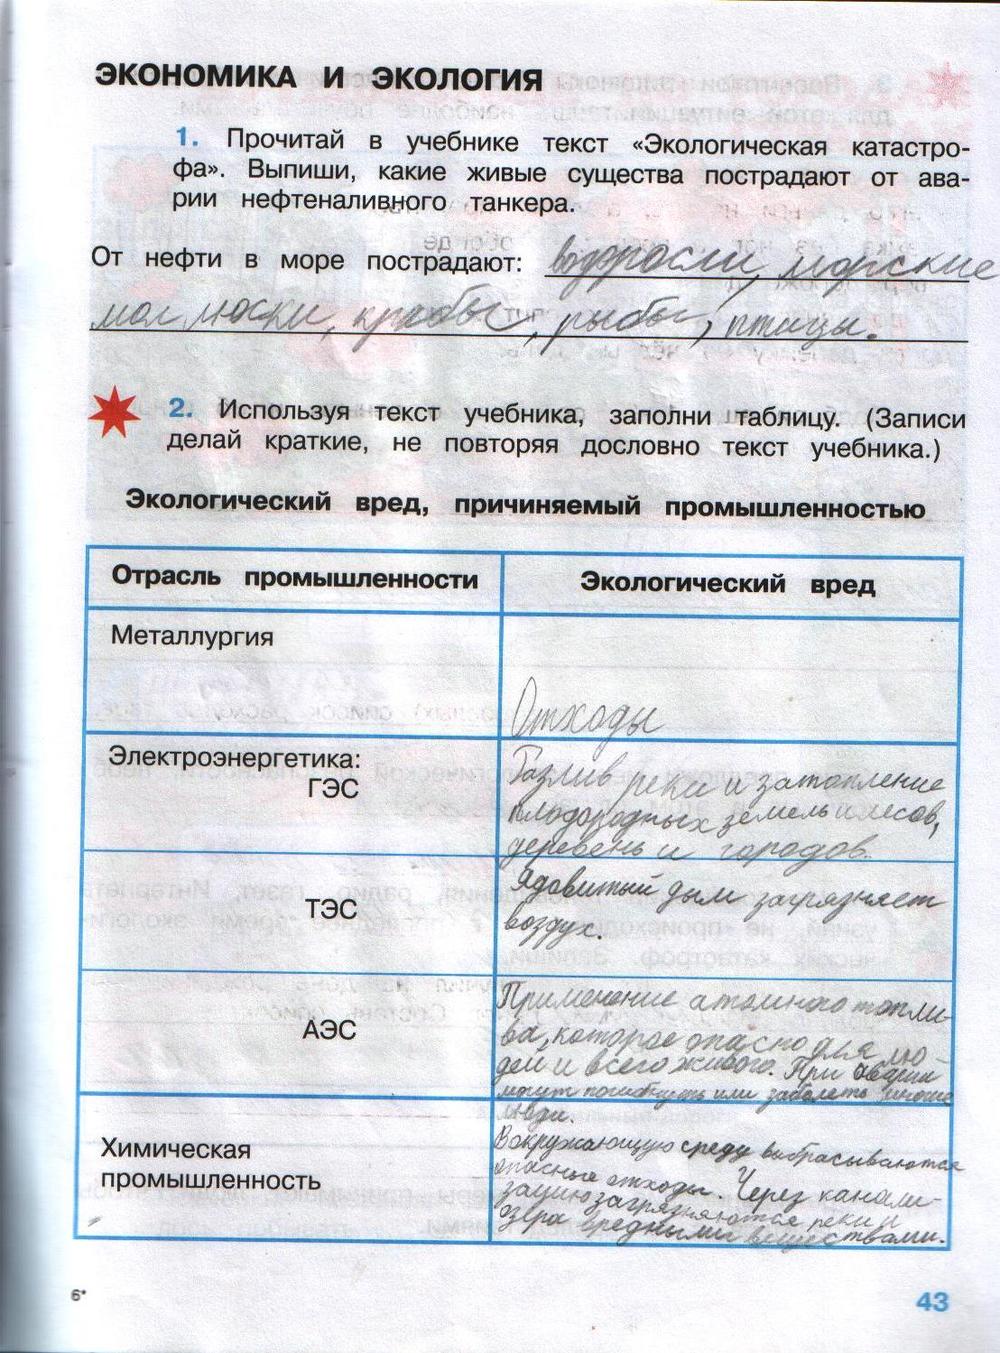 ЭКОНОМИКА И ЭКОЛОГИЯ
1. Прочитай в учебнике текст «Экологическая катастро-
фа». Выпиши, какие живые существа пострадают от ава-
рии нефтеналивного танкера.
От нефти в море пострадают: водоросли, морские
моллюски, крабы, рыбы, птицы.
2. Используя текст учебника, заполни таблицу. (Записи
делай краткие, не повторяя дословно текст учебника.)
Экологический вред, причиняемый промышленностью
Отрасль промышленности
Экологический вред
Металлургия
Отходы
Электроэнергетика:
ГЭС
Разлив реки и затопление
плодородных земель и лесов,
деревень и городов.
ТЭС
Ядовитый дым загрязняет
воздух.
АЭС
Применение атомного топли-
ва, которое опасно для лю-
дей и всего живого. При аварии
могут погибнуть или заболеть многие
люди.
Химическая
промышленность
Вокружающую среду выбрасываются
опасные отходы. Через канали-
зацию загрязняются реки и
озёра вредными веществами.
6*
43